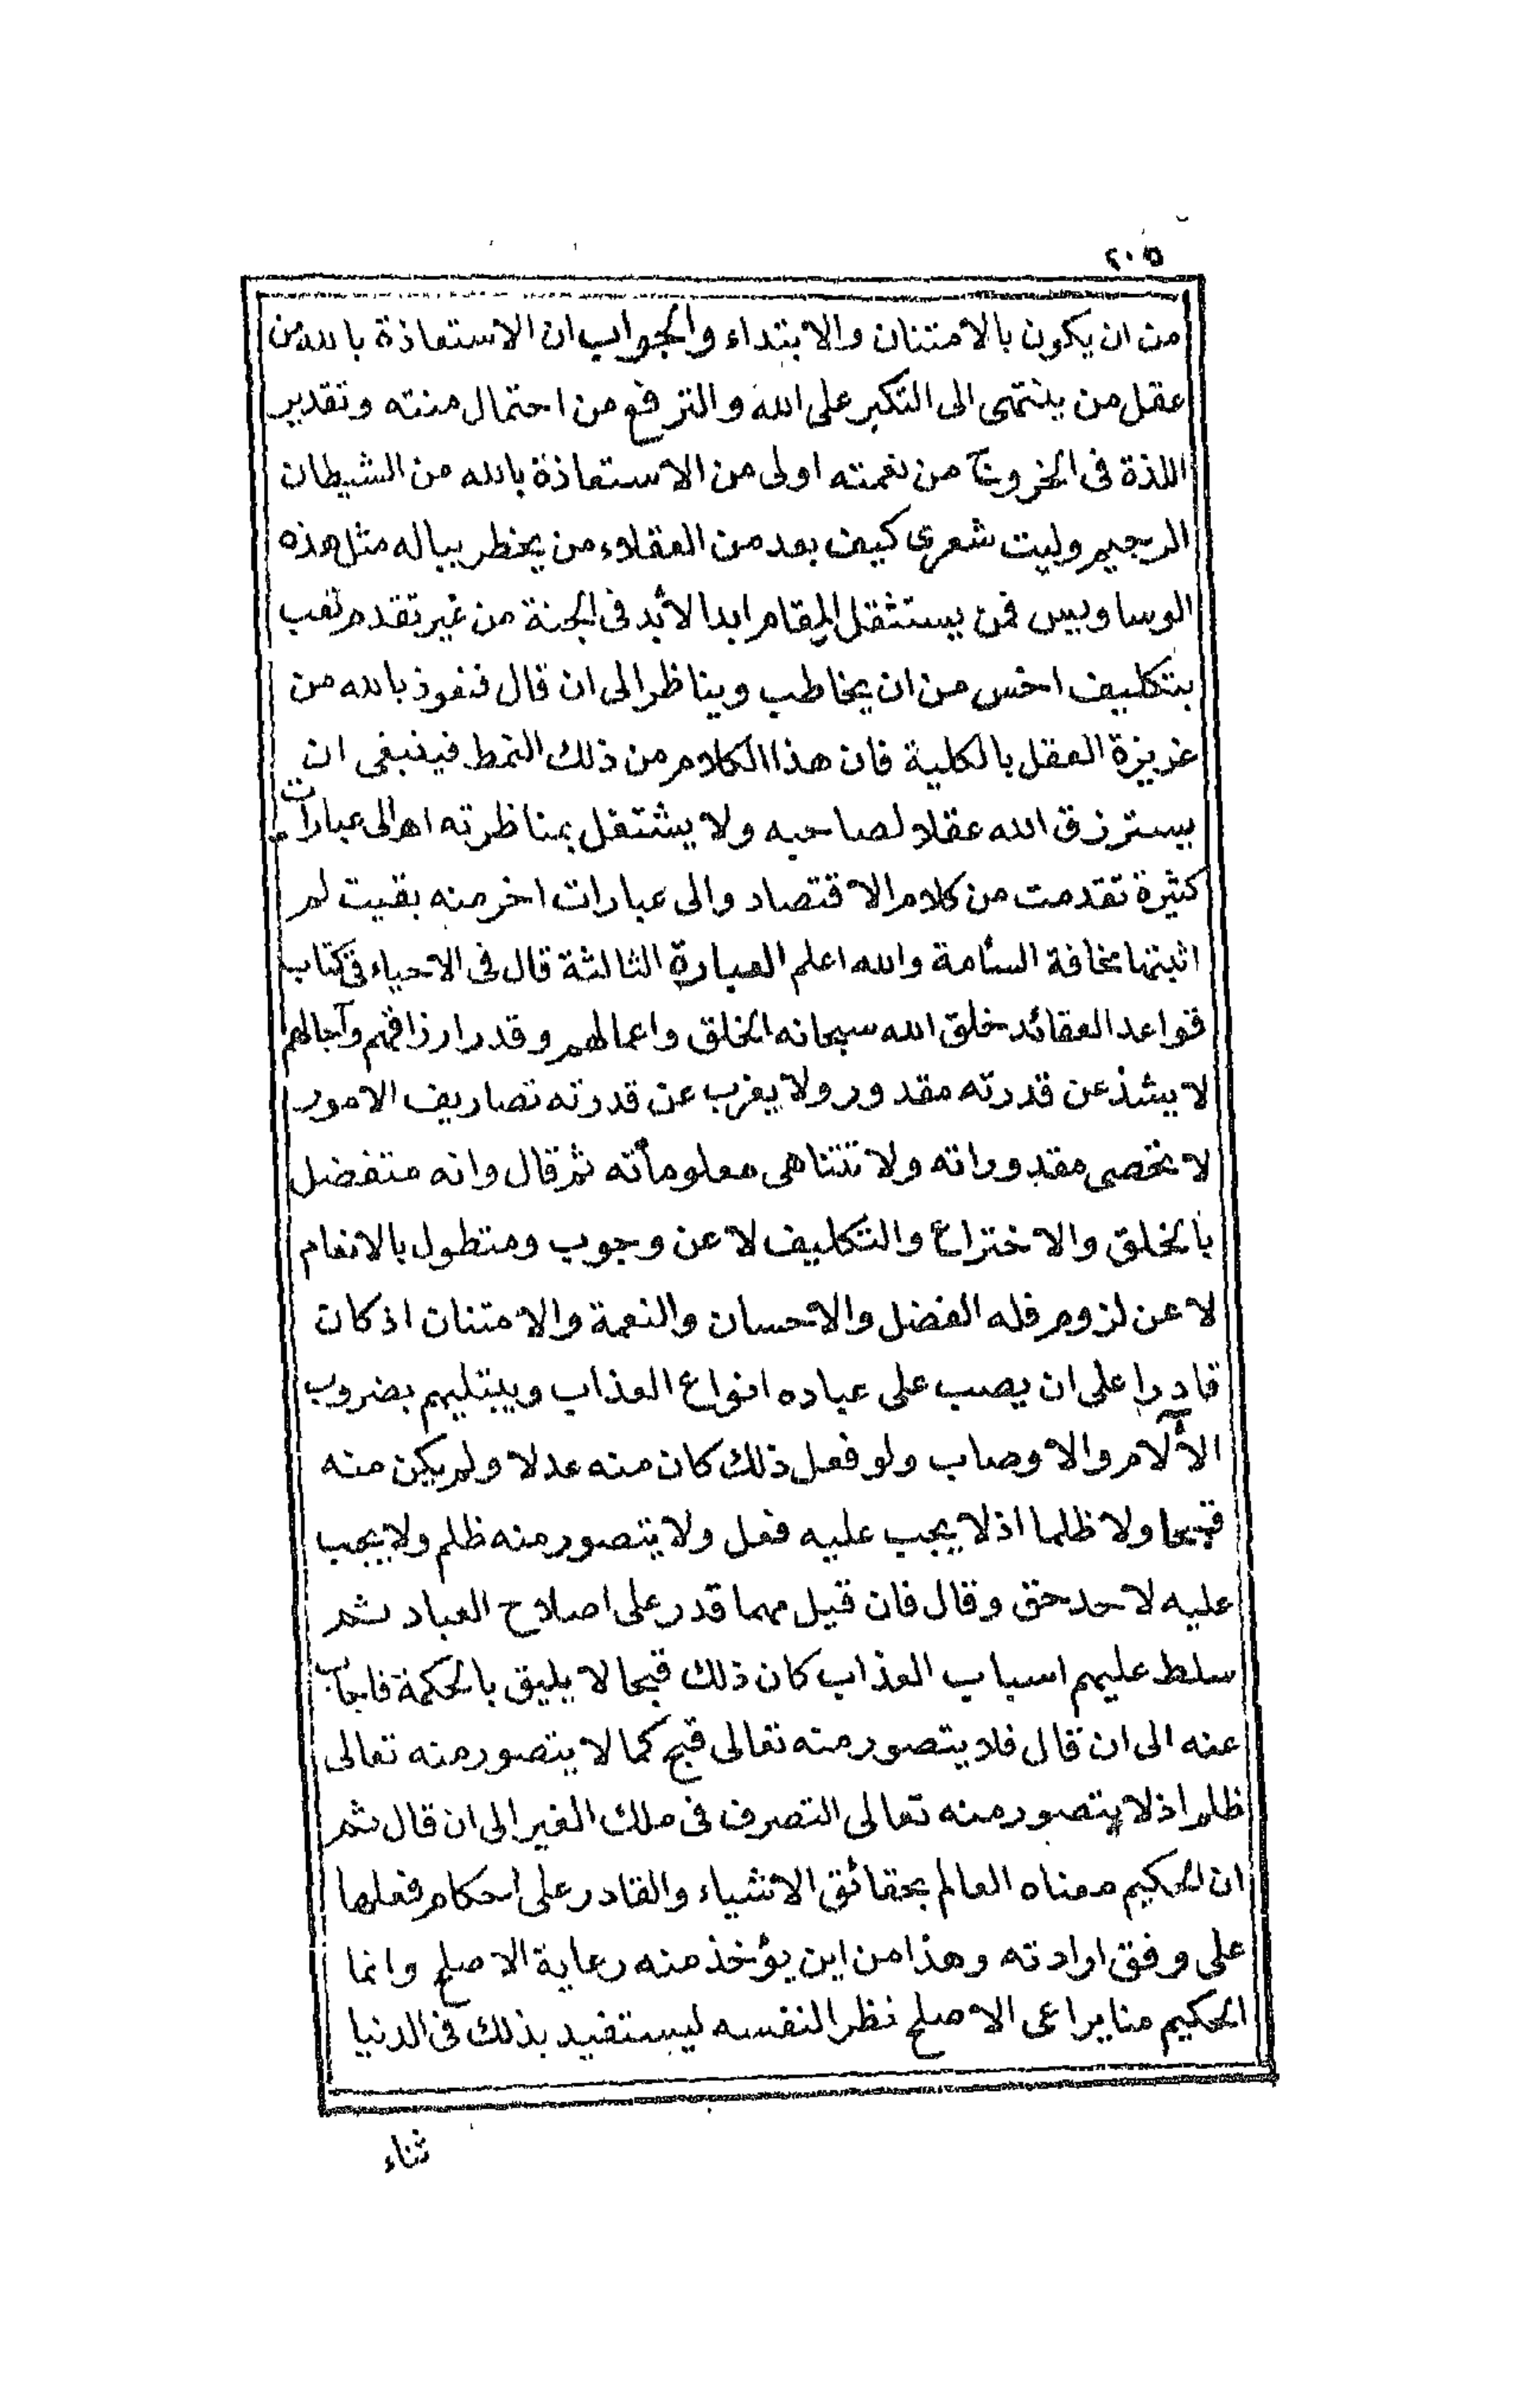 ٢٠٥
من ان يكون بالامتنان والابتداء والجواب ان الاستعاذة بالله من
عقل من ينتهى الى التكبر على الله والترفع من احتمال منته وتقدير
اللذة فى الخروج من نعمته اولى من الاستعاذة بالله من الشيطان
الرجيم وليت شعرى كيف يعد من العقلاء من يخطر بباله مثل هذه
الوساويس فمن يستثقل المقام ابدا الأبد فى الجنة من غير تقدم تعب
بتكليف اخس من ان يخاطب ويناظر الى ان قال فنعوذ بالله من
غريزة العقل بالكلية فان هذا الكلام من ذلك النمط فينبغى ان
يسترزق الله عقلا لصاحبه ولا يشتغل بمناظرته اه الى عبارات
كثيرة تقدمت من كلام الاقتصاد والى عبارات اخر منه بقيت لم
اثبتها مخافة السأمة والله اعلم العبارة الثالثة قال فى الاحياء فى كتاب
قواعد العقائد خلق الله سبحانه الخلق واعمالهم وقدر ارزاقهم وآجالهم
لا يشذ عن قدرته مقدور ولا يعزب عن قدرته تصاريف الامور
لا تحصى مقدوراته ولا تتناهى معلوماته ثم قال وانه متفضل
بالخلق والاختراع والتكليف لا عن وجوب ومتطول بالانعام
لا عن لزوم فله الفضل والاحسان والنعمة والامتنان اذ كان
قادرا على ان يصب على عباده انواع العذاب ويبتليهم بضروب
الآلام والاوصاب ولو فعل ذلك كان منه عدلا ولم يكن منه
قبيحا ولا ظلما اذ لا يجب عليه فعل ولا يتصور منه ظلم ولا يجب
عليه لاحد حق وقال فان قيل مهما قدر على اصلاح العباد ثم
سلط عليهم اسباب العذاب كان ذلك قبحا لا يليق بالحكمة فاجاب
عنه الى ان قال فلا يتصور منه تعالى قبح كما لا يتصور منه تعالى
ظلم اذ لا يتصور منه تعالى التصرف فى ملك الغير الى ان قال ثم
ان الحكيم معناه العالم بحقائق الاشياء والقادر على احكام فعلها
على وفق ارادته وهذا من اين يؤخذ منه رعاية الاصلح وانما
الحكيم منا يراعى الاصلح نظرا لنفسه ليستفيد بذلك فى الدنيا
ثناء